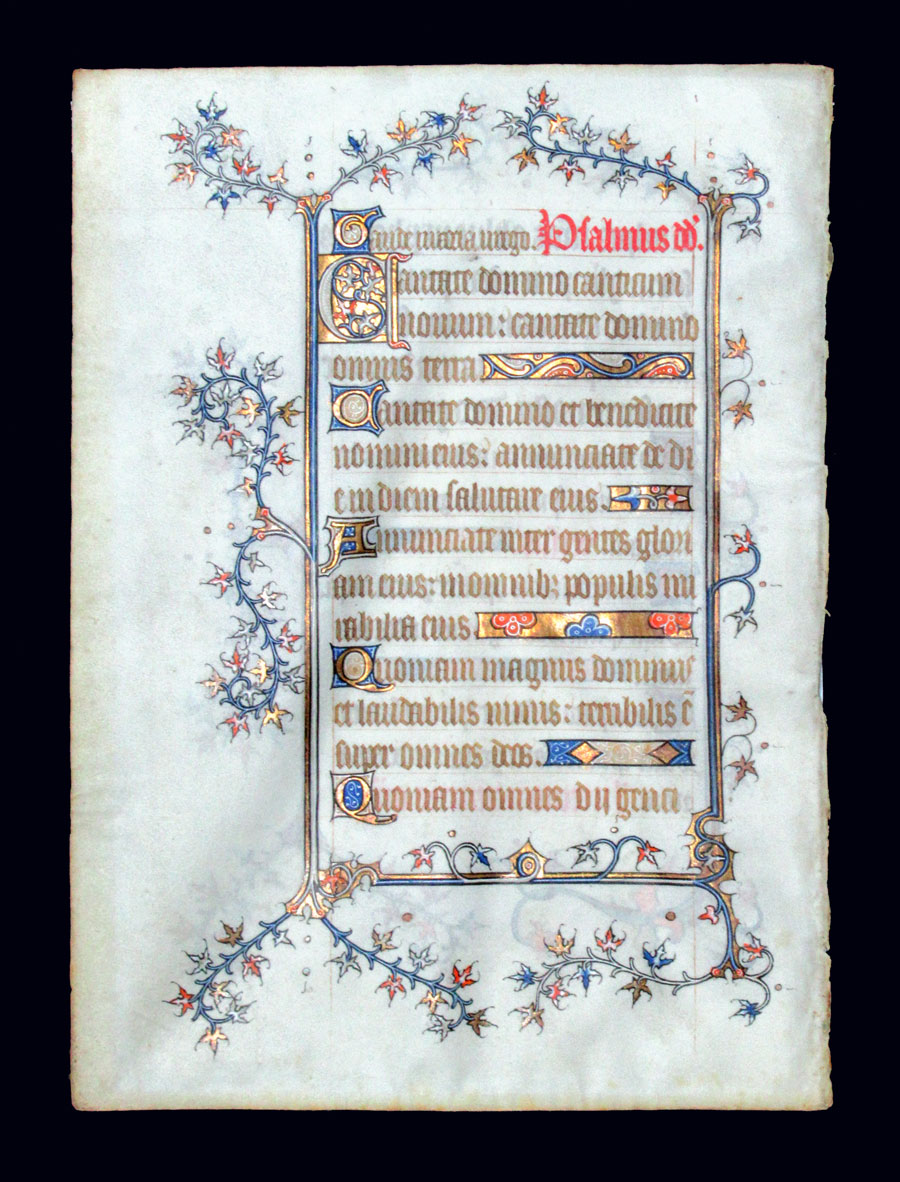 Gaude maria virgo. Psalmus dd.
Cantate domino canticum
nouum: cantate domino
omnis terra
Cantate domino et benedicite
nomini eius: annunciate de di
e in diem salutare eius.
Annunciate inter gentes glori
am eius: in omnib; populis mi
rabilia eius.
Quoniam magnus dominus
et laudabilis nimis: terribilis ē
super omnes deos.
Quoniam omnes dij genci